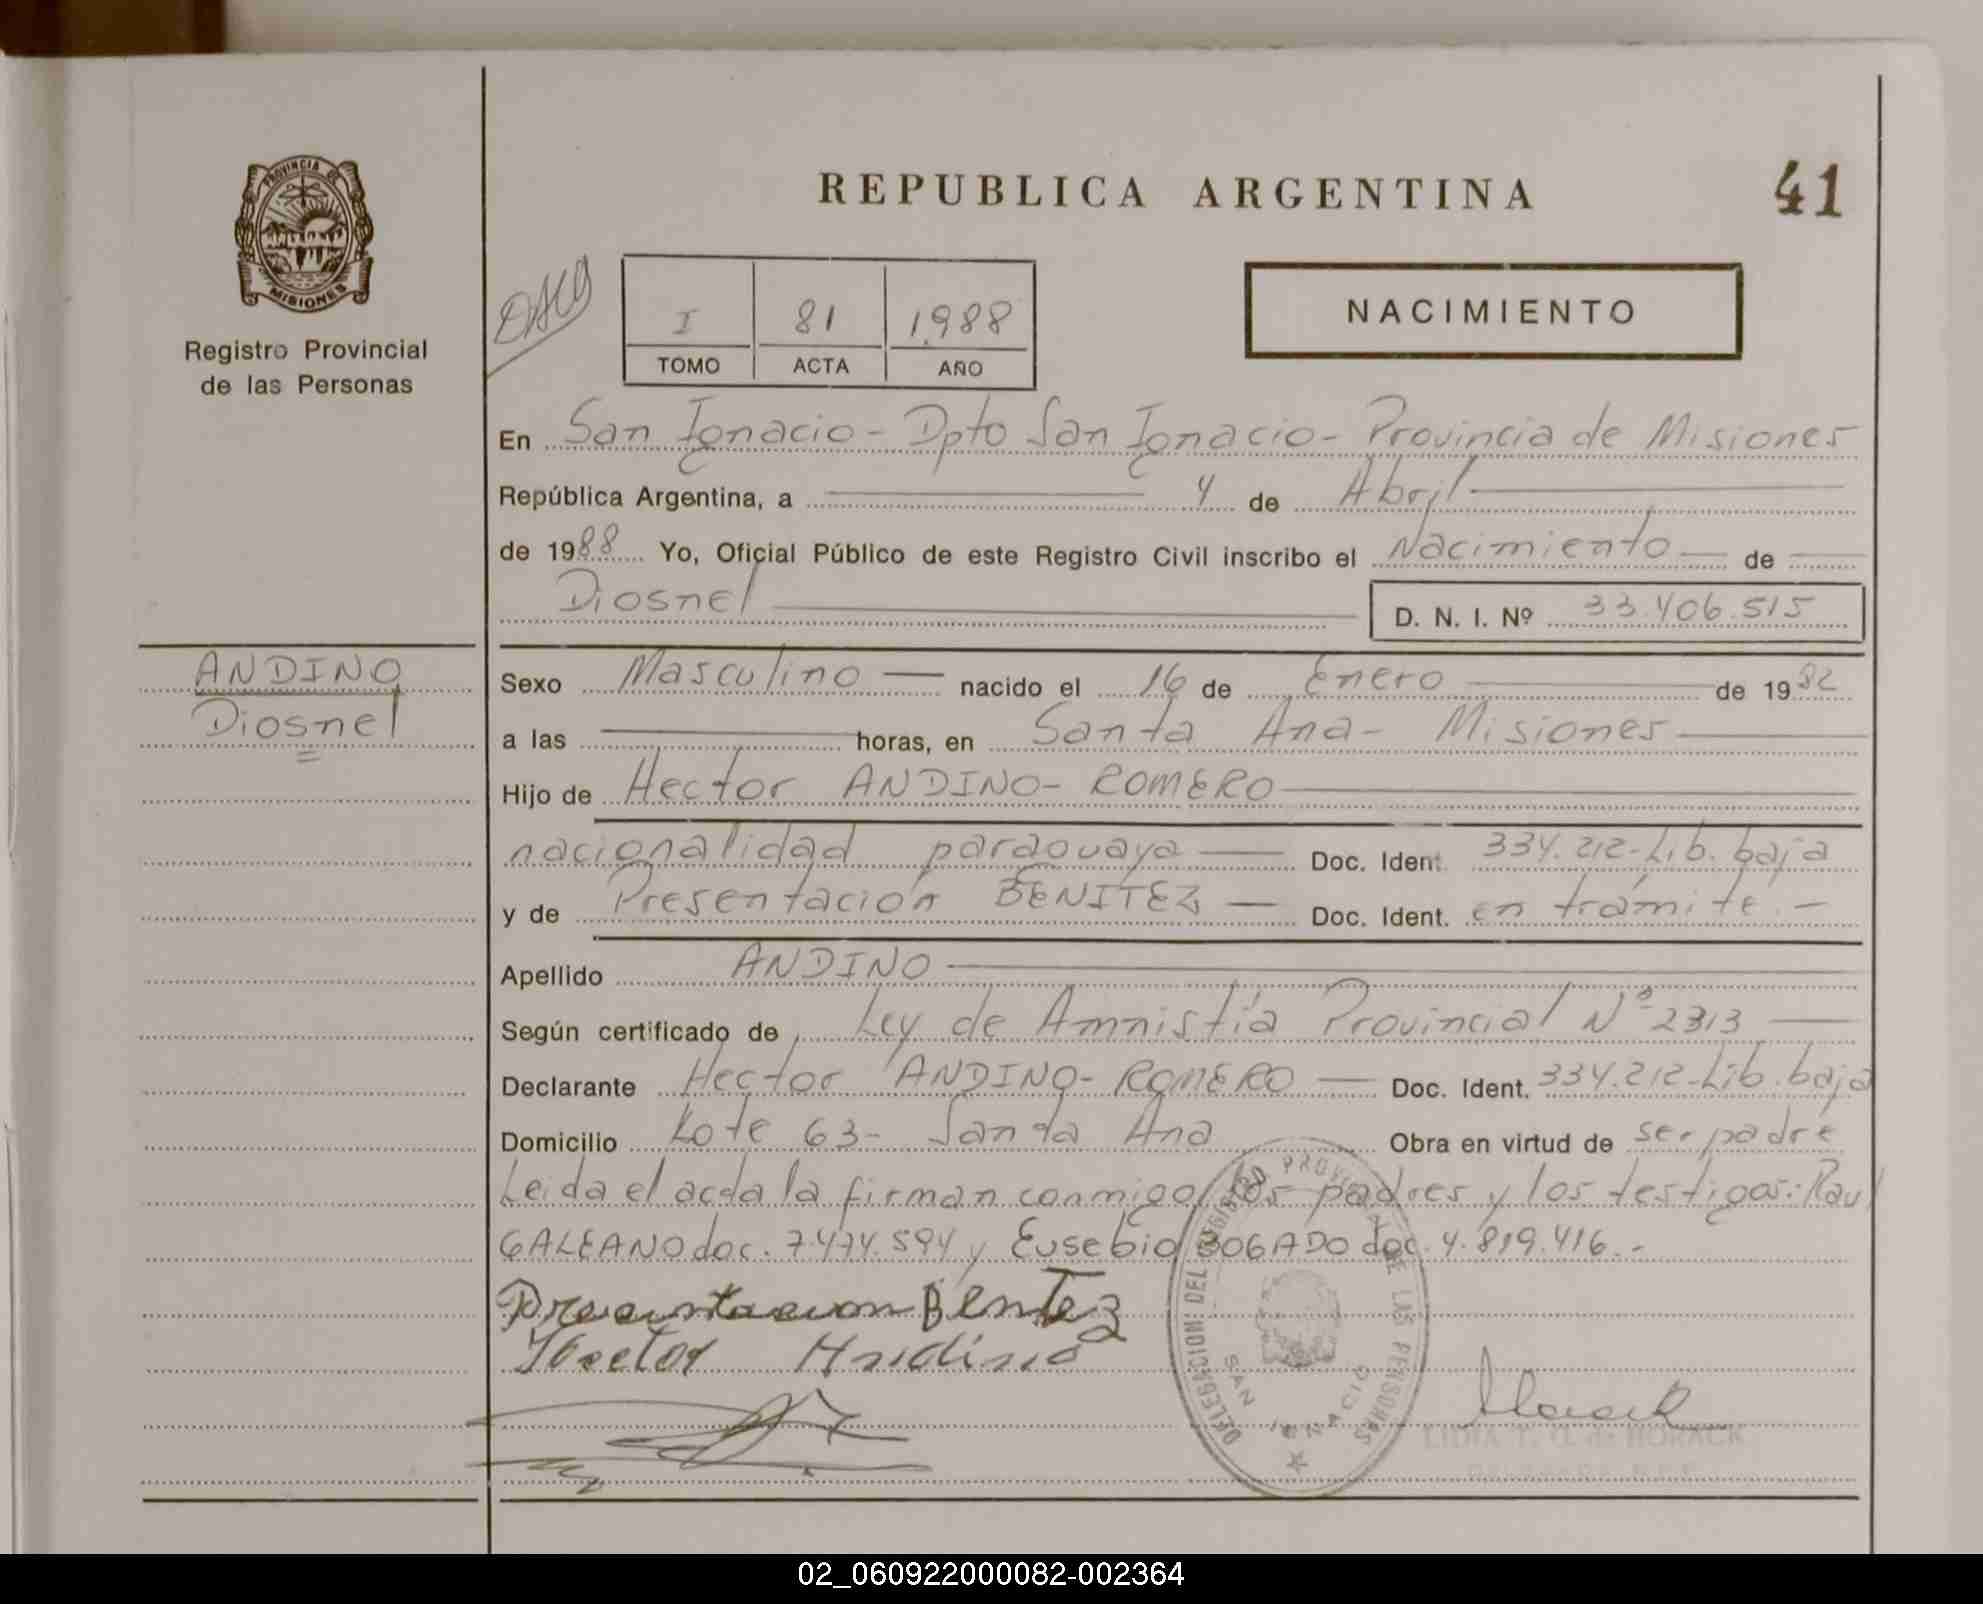 PROVINCIA DE
MISIONES
Registro Provincial
de las Personas
REPUBLICA ARGENTINA
41
I 81 1988
TOMO ACTA AÑO
NACIMIENTO
En San Ignacio - Dpto San Ignacio - Provincia de Misiones
República Argentina, a 4 de Abril
de 1988 Yo, Oficial Público de este Registro Civil inscribo el Nacimiento de
Diosnel
D. N. I. Nº 33.406.515
ANDINO
Diosnel
Sexo Masculino nacido el 16 de Enero de 1982
a las horas, en Santa Ana - Misiones
Hijo de Hector ANDINO - ROMERO
nacionalidad paraguaya Doc. Ident. 334.212 - Lib. baja
y de Presentación BENITEZ Doc. Ident. en trámite. -
Apellido ANDINO
Según certificado de Ley de Amnistía Provincial Nº 2313
Declarante Hector ANDINO - ROMERO Doc. Ident. 334.212 - Lib. baja
Domicilio Lote 63 - Santa Ana Obra en virtud de ser padre
Leida el acta la firman conmigo los padres y los testigos: Raul
GALEANO doc. 7.474.594 y Eusebio BOGADO doc. 4.819.416. -
Presentacion Benitez
Hector Andino
DELEGACION DEL REGISTRO PROVINCIAL DE LAS PERSONAS
SAN IGNACIO
Horack
LIDIA T. G. de HORACK
02_060922000082-002364